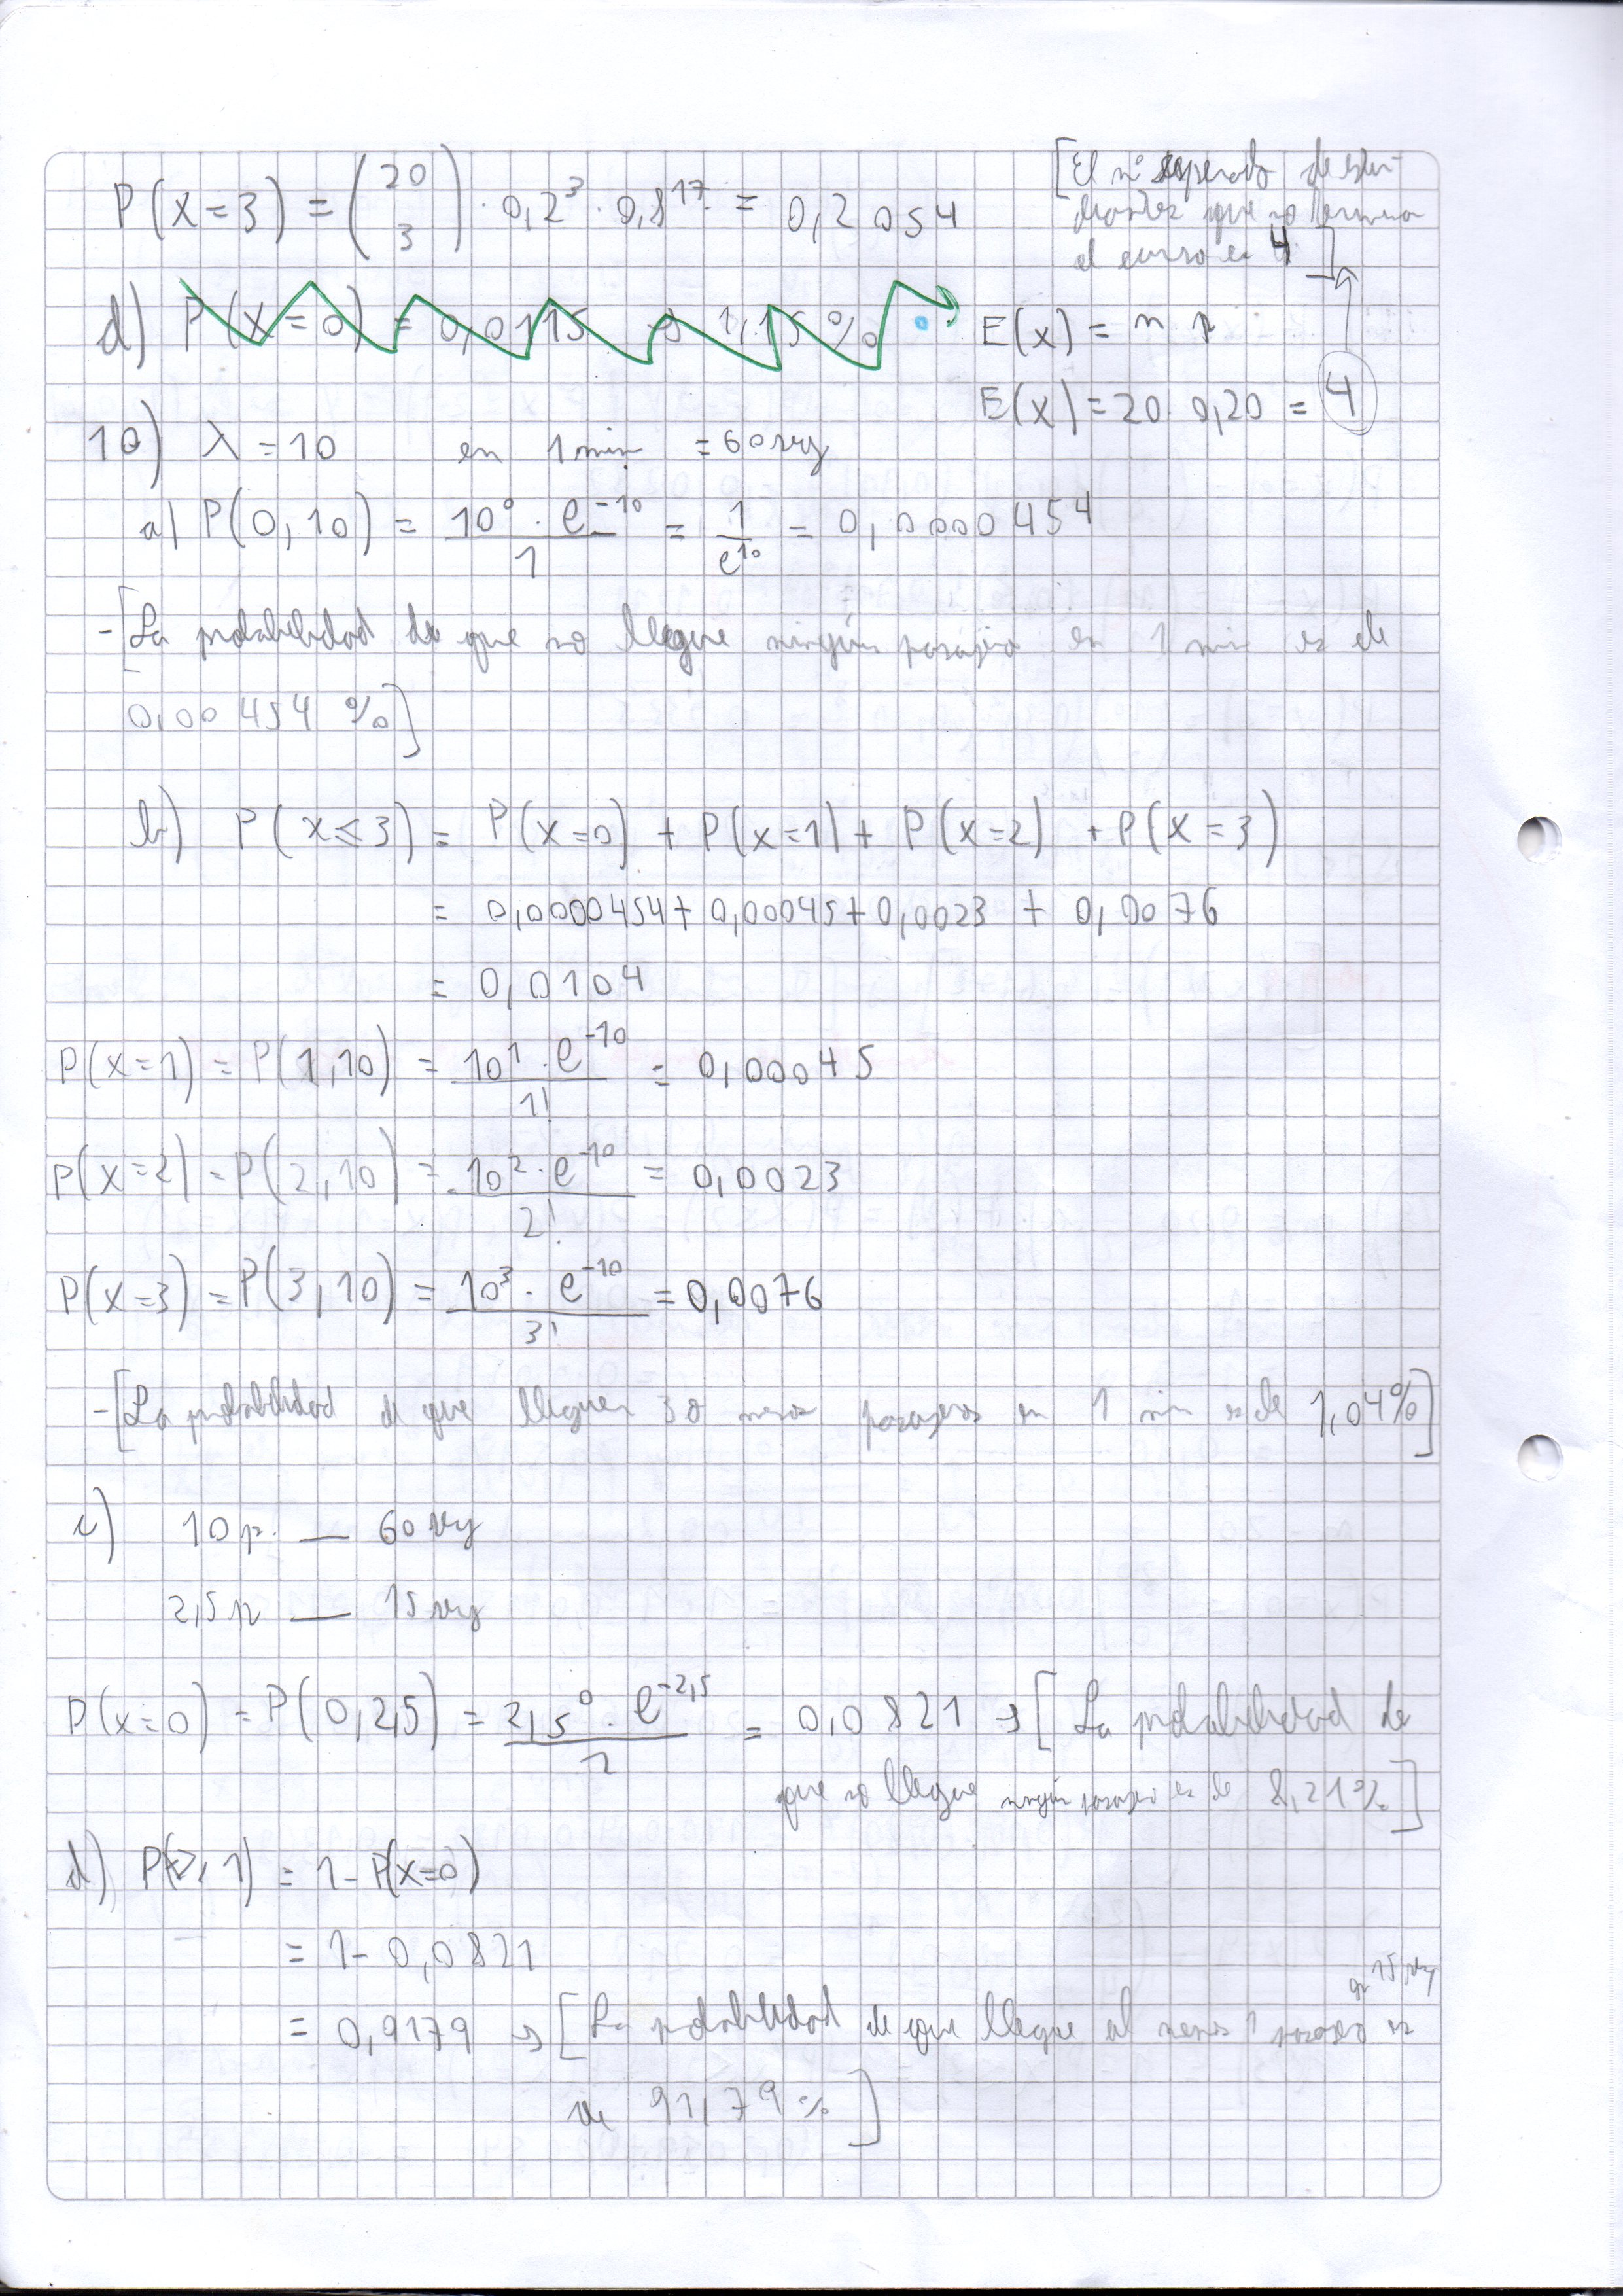 P(X=3) = (20 3) · 0,2³ · 0,8¹⁷ = 0,2054
[El nº esperado de estu-
diantes que no termina
el curso es 4]
d) P(X=0) = 0,0115 → 1,15%
E(x) = n p
E(x) = 20 · 0,20 = 4
10) λ = 10 en 1 min = 60 seg
a) P(0,10) = 10⁰ · e⁻¹⁰ / 1 = 1 / e¹⁰ = 0,0000454
- [La probabilidad de que no llegue ningún pasajero en 1 min es de
0,00454 %]
b) P(x≤3) = P(x=0) + P(x=1) + P(x=2) + P(x=3)
= 0,0000454 + 0,00045 + 0,0023 + 0,0076
= 0,0104
P(x=1) = P(1,10) = 10¹ · e⁻¹⁰ / 1! = 0,00045
P(x=2) = P(2,10) = 10² · e⁻¹⁰ / 2! = 0,0023
P(x=3) = P(3,10) = 10³ · e⁻¹⁰ / 3! = 0,0076
- [La probabilidad de que lleguen 3 o menos pasajeros en 1 min es de 1,04%]
c) 10 p. — 60 seg
2,5 p — 15 seg
P(x=0) = P(0, 2,5) = 2,5⁰ · e⁻²,⁵ / 1 = 0,0821 → [La probabilidad de
que no llegue ningún pasajero es de 8,21%]
d) P(≥, 1) = 1 - P(x=0)
= 1 - 0,0821
en 15 seg
= 0,9179 → [La probabilidad de que llegue al menos 1 pasajero es
de 91,79 %]